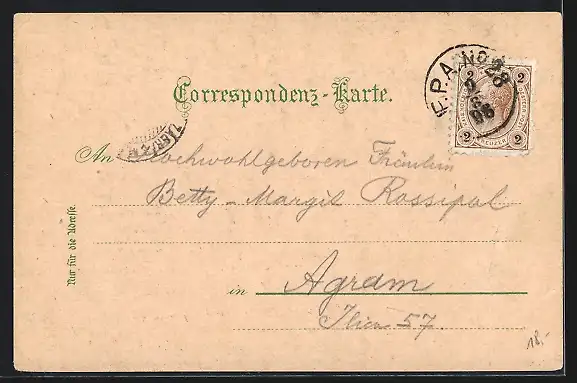 F.P.A. No. 28
98
2 2
KREUZER
2 2
Correspondenz-Karte.
An Hochwohlgeboren Fräulein
Betty-Margit Rossipal
Nur für die Adresse.
in Agram
Ilica 57.
18,-